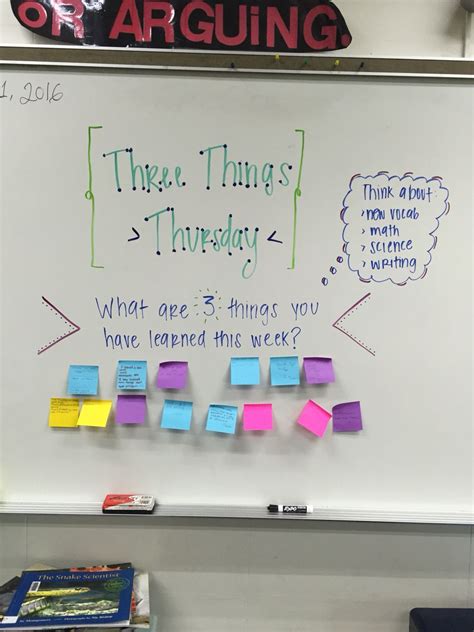 OR ARGUING.
1, 2016
Three Things
> Thursday <
Think about:
> new vocab
> math
> science
> writing
What are 3 things you
have learned this week?
EXPO
The Snake Scientist